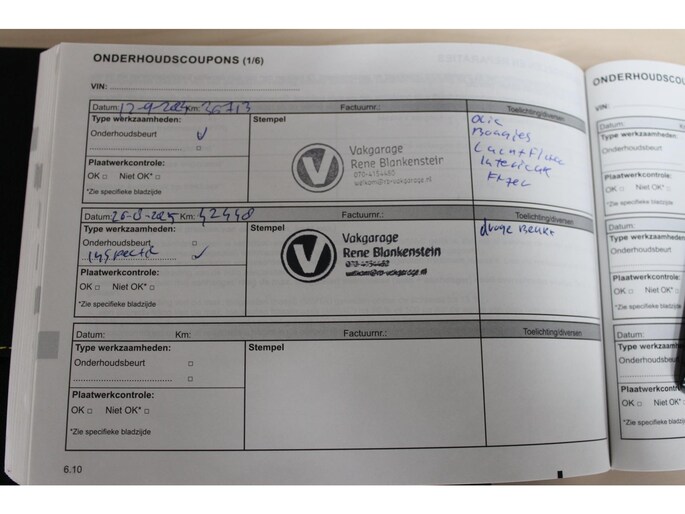 ONDERHOUDSCOUPONS (1/6)
VIN:
Datum: 12-9-2024 Km: 36713 Factuurnr.: Toelichting/diversen
Type werkzaamheden: Stempel olie
Onderhoudsbeurt V Bougies
Vakgarage
Rene Blankenstein
070-4154480
welkom@rb-vakgarage.nl
Luchtfilter
Interieur
Filter
Plaatwerkcontrole:
OK □ Niet OK* □
*Zie specifieke bladzijde
Datum: Km: 42448 Factuurnr.: Toelichting/diversen
Type werkzaamheden: Stempel
Onderhoudsbeurt □
inspectie
Vakgarage
Rene Blankenstein
droge Beurt
Plaatwerkcontrole:
OK □ Niet OK* □
*Zie specifieke bladzijde
Datum: Km: Factuurnr.: Toelichting/diversen
Type werkzaamheden: Stempel
Onderhoudsbeurt □
□
Plaatwerkcontrole:
OK □ Niet OK* □
*Zie specifieke bladzijde
6.10
ONDERHOUDSCOU
VIN:
Datum:
Type werkzaamheden
Onderhoudsbeurt
Plaatwerkcontrole:
OK □ Niet OK*
*Zie specifieke bladzijde
Datum:
Type werkzaamheden
Onderhoudsbeurt
Plaatwerkcontrole:
OK □ Niet OK* □
*Zie specifieke bladzijde
Datum:
Type werkzaamh
Onderhoudsbeurt
Plaatwerkcontr
OK □ Niet OK*
*Zie specifieke bladzijde